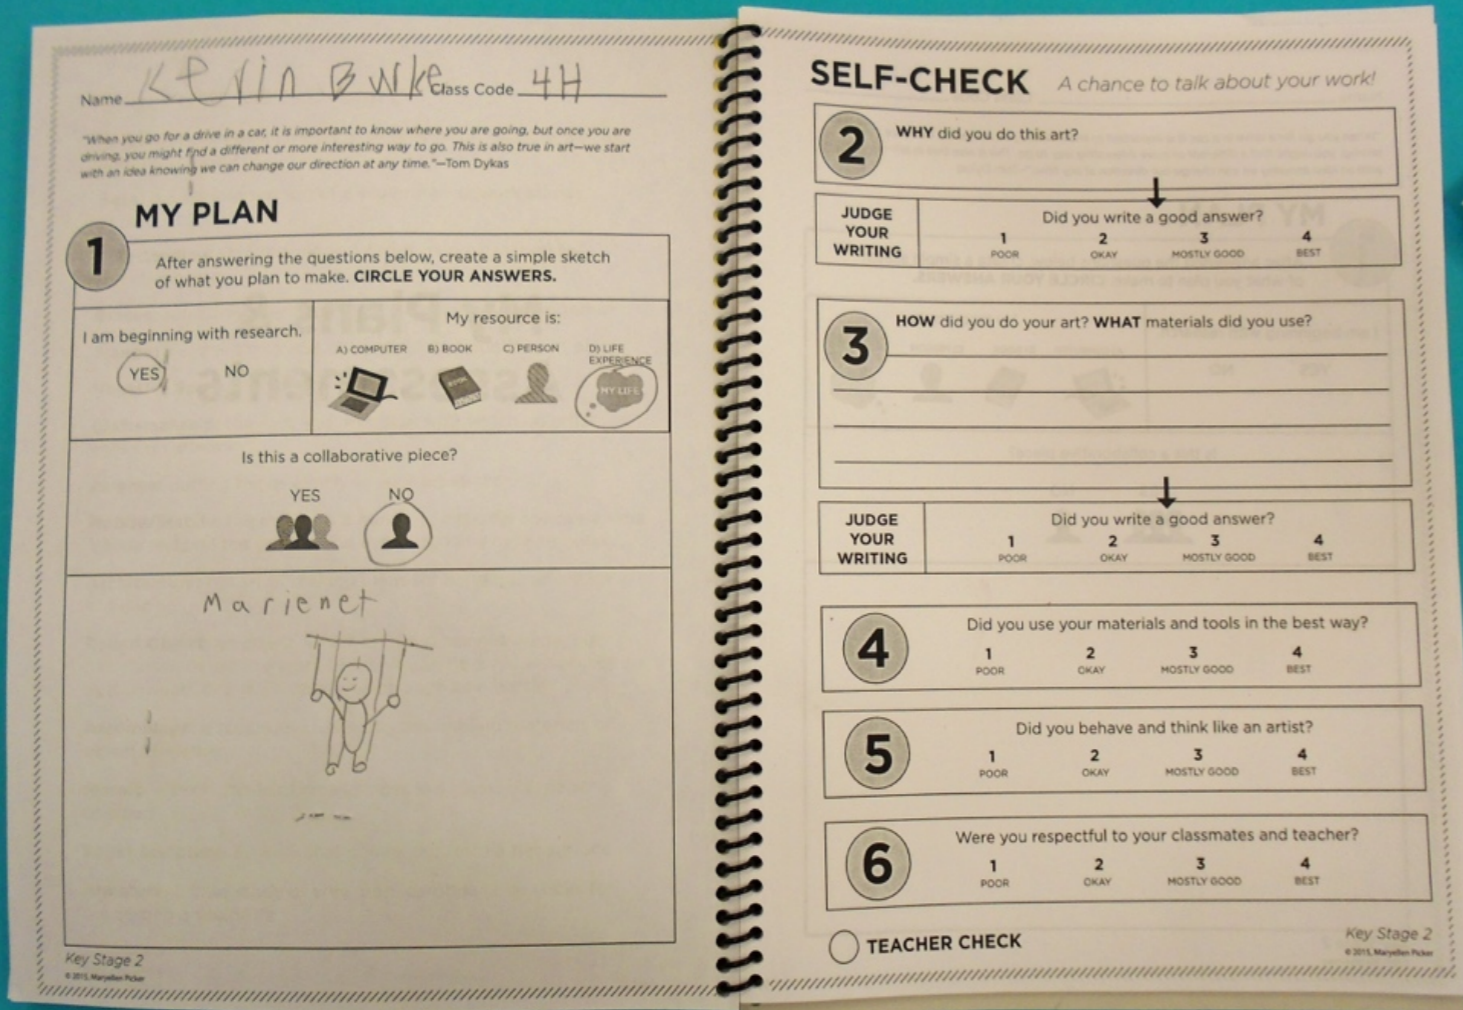 Name Kevin Burke Class Code 4H
"When you go for a drive in a car, it is important to know where you are going, but once you are
driving, you might find a different or more interesting way to go. This is also true in art—we start
with an idea knowing we can change our direction at any time."—Tom Dykas
MY PLAN
1
After answering the questions below, create a simple sketch
of what you plan to make. CIRCLE YOUR ANSWERS.
I am beginning with research.
YES NO
My resource is:
A) COMPUTER B) BOOK C) PERSON D) LIFE
EXPERIENCE
MY LIFE
Is this a collaborative piece?
YES NO
Marienet
Key Stage 2
© 2015, Maryellen Picker
SELF-CHECK A chance to talk about your work!
2
WHY did you do this art?
JUDGE
YOUR
WRITING
Did you write a good answer?
1 2 3 4
POOR OKAY MOSTLY GOOD BEST
3
HOW did you do your art? WHAT materials did you use?
JUDGE
YOUR
WRITING
Did you write a good answer?
1 2 3 4
POOR OKAY MOSTLY GOOD BEST
4
Did you use your materials and tools in the best way?
1 2 3 4
POOR OKAY MOSTLY GOOD BEST
5
Did you behave and think like an artist?
1 2 3 4
POOR OKAY MOSTLY GOOD BEST
6
Were you respectful to your classmates and teacher?
1 2 3 4
POOR OKAY MOSTLY GOOD BEST
TEACHER CHECK
Key Stage 2
© 2015, Maryellen Picker